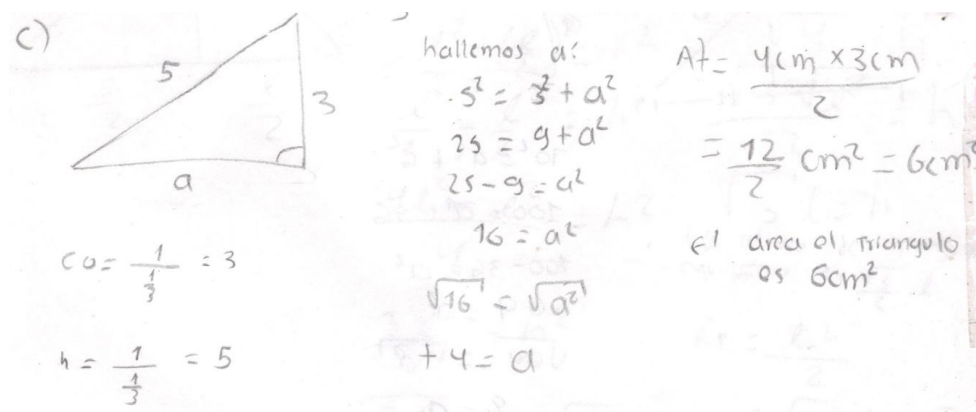 c)
5
3
a
co = 1/(1/3) = 3
h = 1/(1/3) = 5
hallemos a:
5² = 3² + a²
25 = 9 + a²
25 - 9 = a²
16 = a²
√16 = √a²
+4 = a
At = (4cm × 3cm)/2
= 12/2 cm² = 6cm²
El area el triangulo
es 6cm²